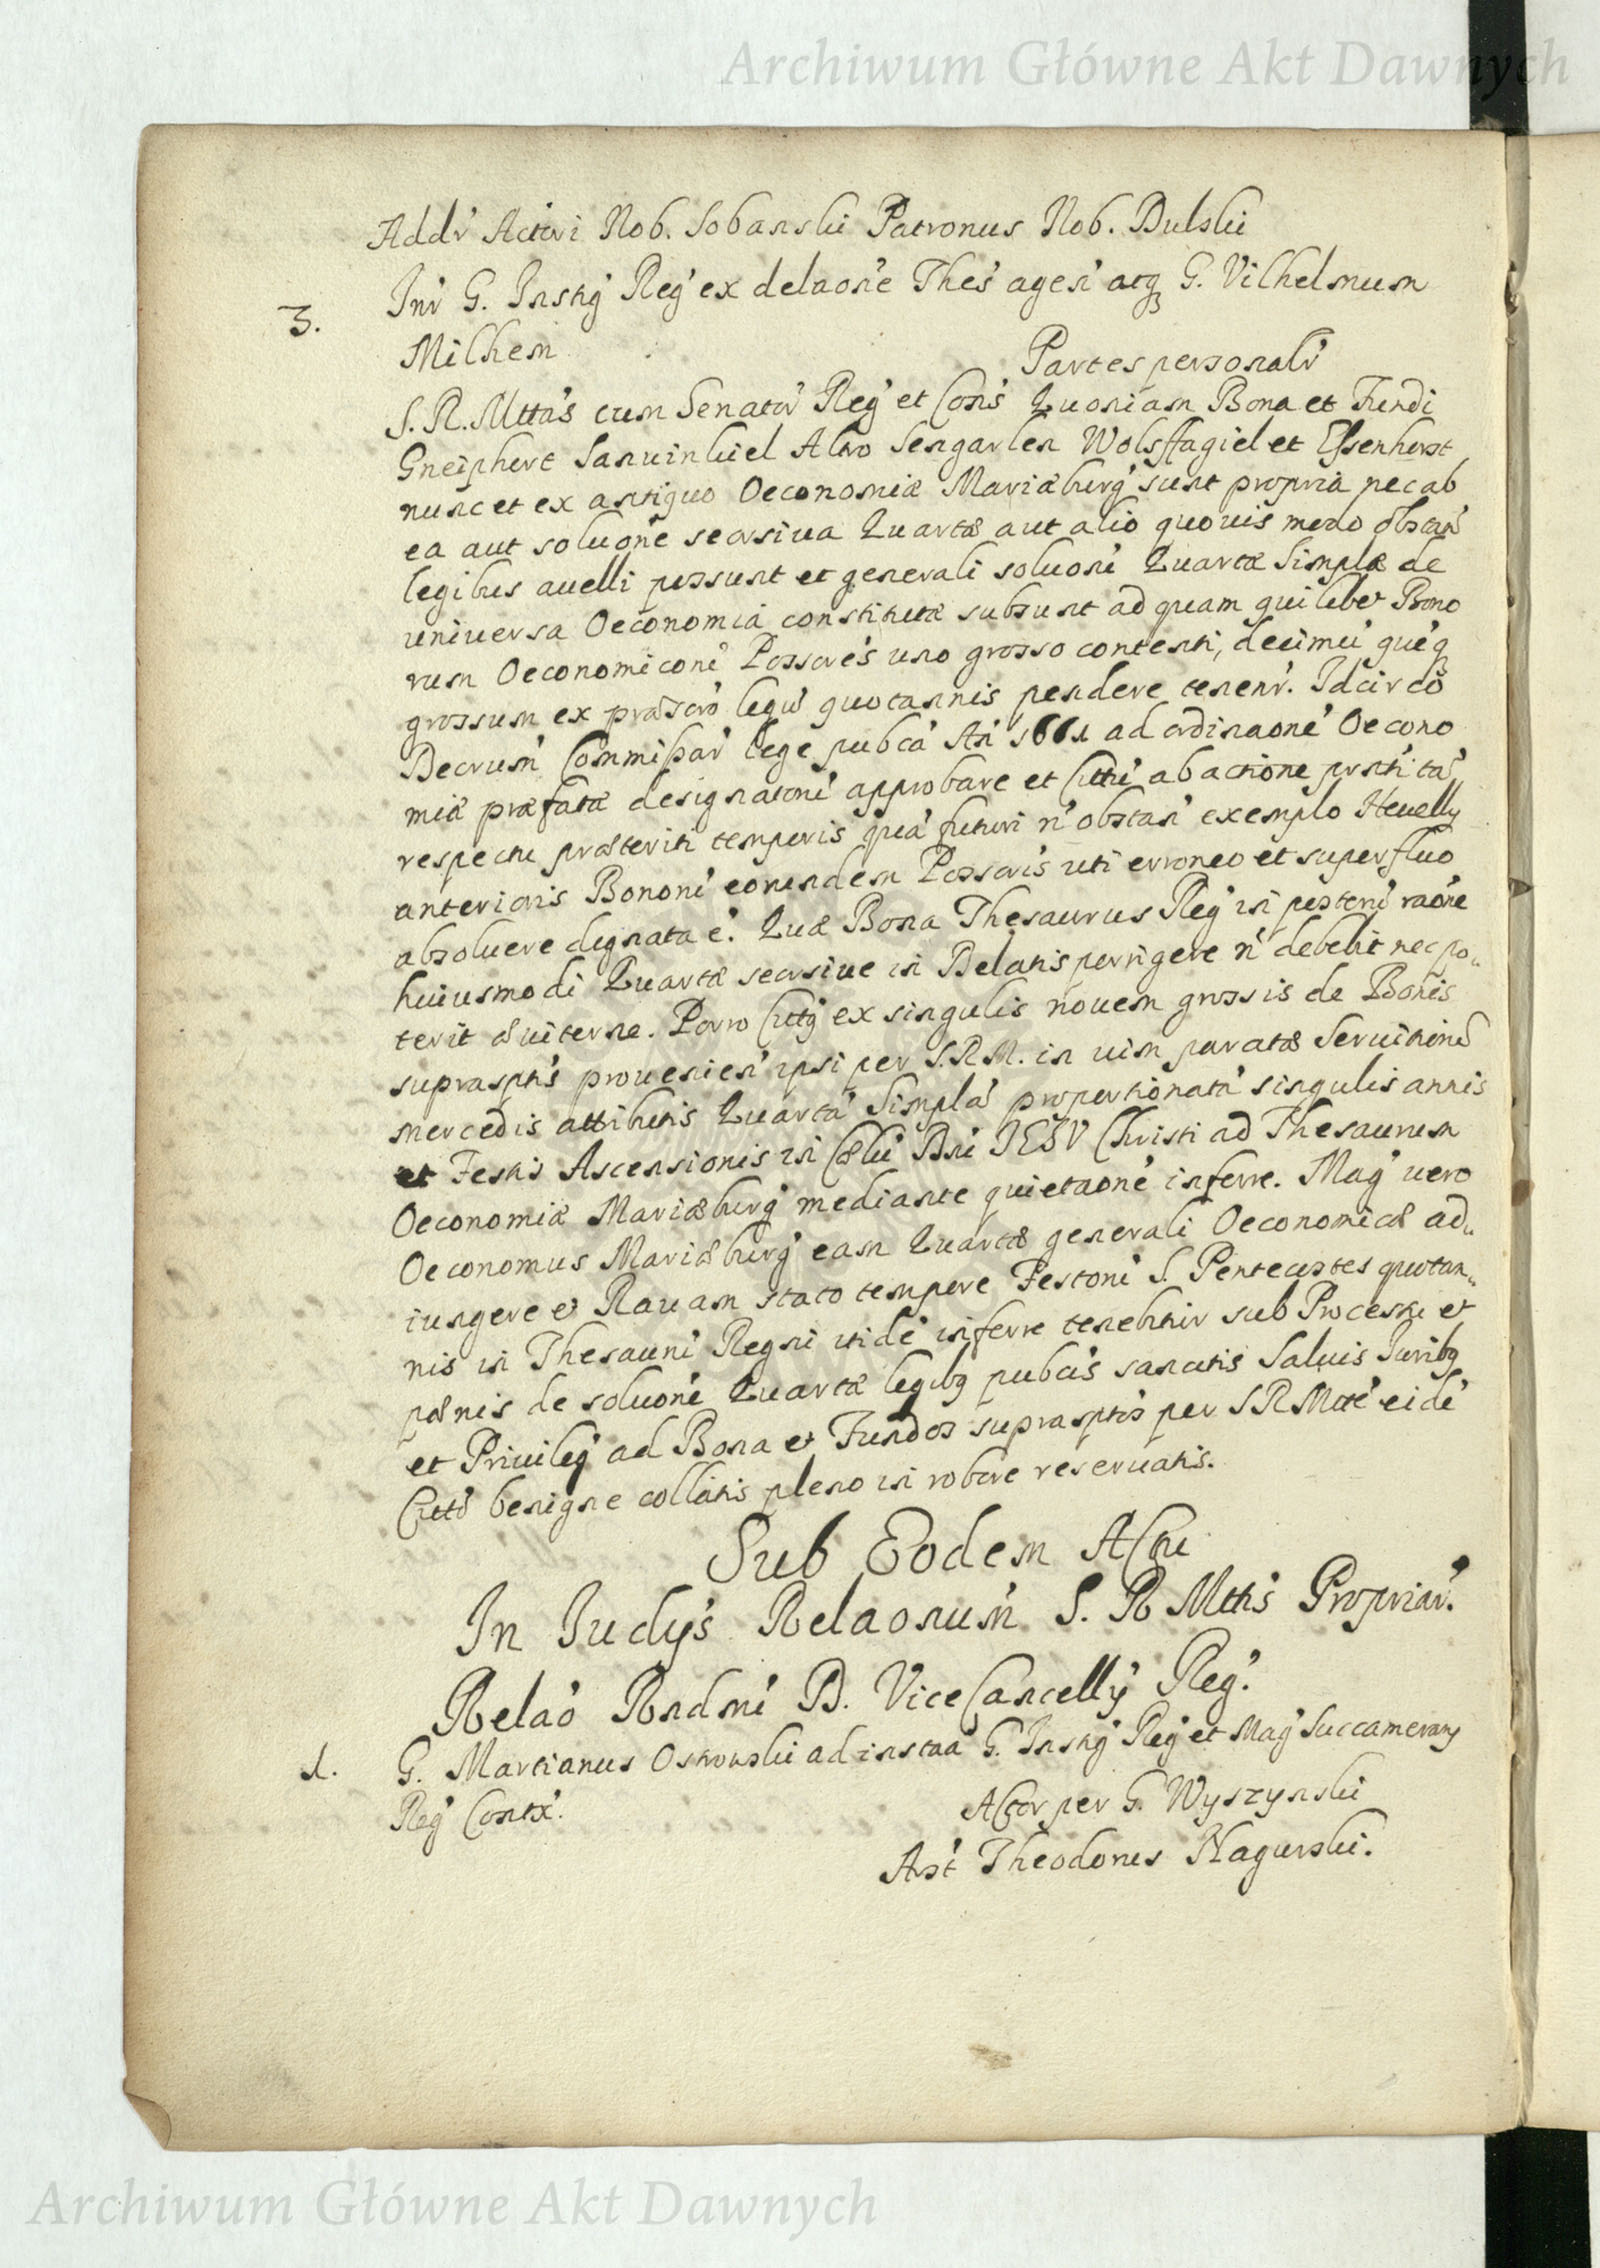 Archiwum Główne Akt Dawnych
Addr' Actori Nob. Sobanski Patronus Nob. Dulski
3. Inr' G. Instig' Reg' ex delaone' Thes' agen' atq3 G. Vilhelmum
Milhem
Partes personalr'
S. R. Mttas' cum Senator' Reg' et Cons' Quoniam Bona et Fundi
Gneiphort Sanuinkiel Altro Sengarlen Wolsffagiel et Essenhorst
nunc et ex antiquo Oeconomiæ Mariæburg' sunt propria nec ab
ea aut soluone' seorsiua Quartæ aut alio quouis modo obstan'
legibus auelli possunt et generali soluoni' Quartæ Simplæ de
uniuersa Oeconomia constitutæ subsunt ad quam quilibet Bono
rum Oeconomicorū' Possores' uno grosso contenti, decimū' quēq3
grossum ex præscro' legu' quotannis pendere tenenr'. Idcirco
Decrum' Commissar' lege pubca' An' 1661 ad ordinaone' Oecono
miæ præfatæ designatorū' approbare et Cittū' ab actione prnti ta'
respectu præteriti temporis quā' futuri n' obstan' exemplo Heuelly
anterioris Bonorū' eorundem Possoris' uti erroneo et superfluo
absoluere dignata e'. Quæ Bona Thesaurus Reg' in posterū' raone'
huiusmodi Quartæ seorsiue in Delatis porrigere n' debebit nec po„
terit æuiterne. Porro Cittq' ex singulis nouem grossis de Bonis
suprasptis' prouenien' ipsi per S. R. M. in uim paratæ Seruitiorū'
mercedis attibutis Quartā' Simplā' proportionatā' singulis annis
et Festis Ascensionis in Cœlū' Dni' IESV Christi ad Thesaurum
Oeconomiæ Mariæburg' mediante quietaone' inferre. Mag' uero
Oeconomus Mariæburg' eam Quartæ generali Oeconomicæ ad„
iungere et Rauam stato tempore Festorū' S. Pentecostes quotan„
nis in Thesaurū' Regni itidē' inferre tenebitur sub Processu et
pœnis de soluone' Quartæ legibq pubcis' sancitis Saluis Juribq
et Priuileg' ad Bona et Fundos suprasptos per S R Mtte' eidē'
Citto' benigne collatis pleno in robore reseruatis.
Sub Eodem Actu
In Judys' Relaonum' S. R Mttis' Propriar'.
Relao' Rndmi' D. ViceCancelly Reg'.
1. G. Martianus Ostrowski ad instaa' G. Instig' Reg' et Mag' Succamerarij
Reg' Contx'.
Actor per G. Wyszynski
Art' Theodorus Nagurski.
Archiwum Główne Akt Dawnych